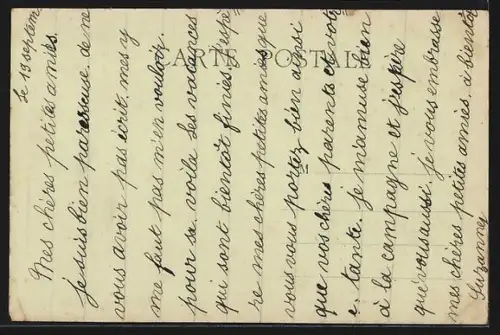 CARTE POSTALE
Le 13 septem
Mes chères petites amies.
je suis bien paresseuse de ne
vous avoir pas écrit. mes y
me faut pas m'en vouloir
pour sa. voila les vacances
qui sont bientôt finies j'espè
re mes chères petites amies que
vous vous portez bien ainsi
que vos chères parents et votre
tante. je m'amuse bien
à la campagne et j'espère
que vous aussi. je vous embrasse
mes chères petites amies. à bientôt
Suzanne